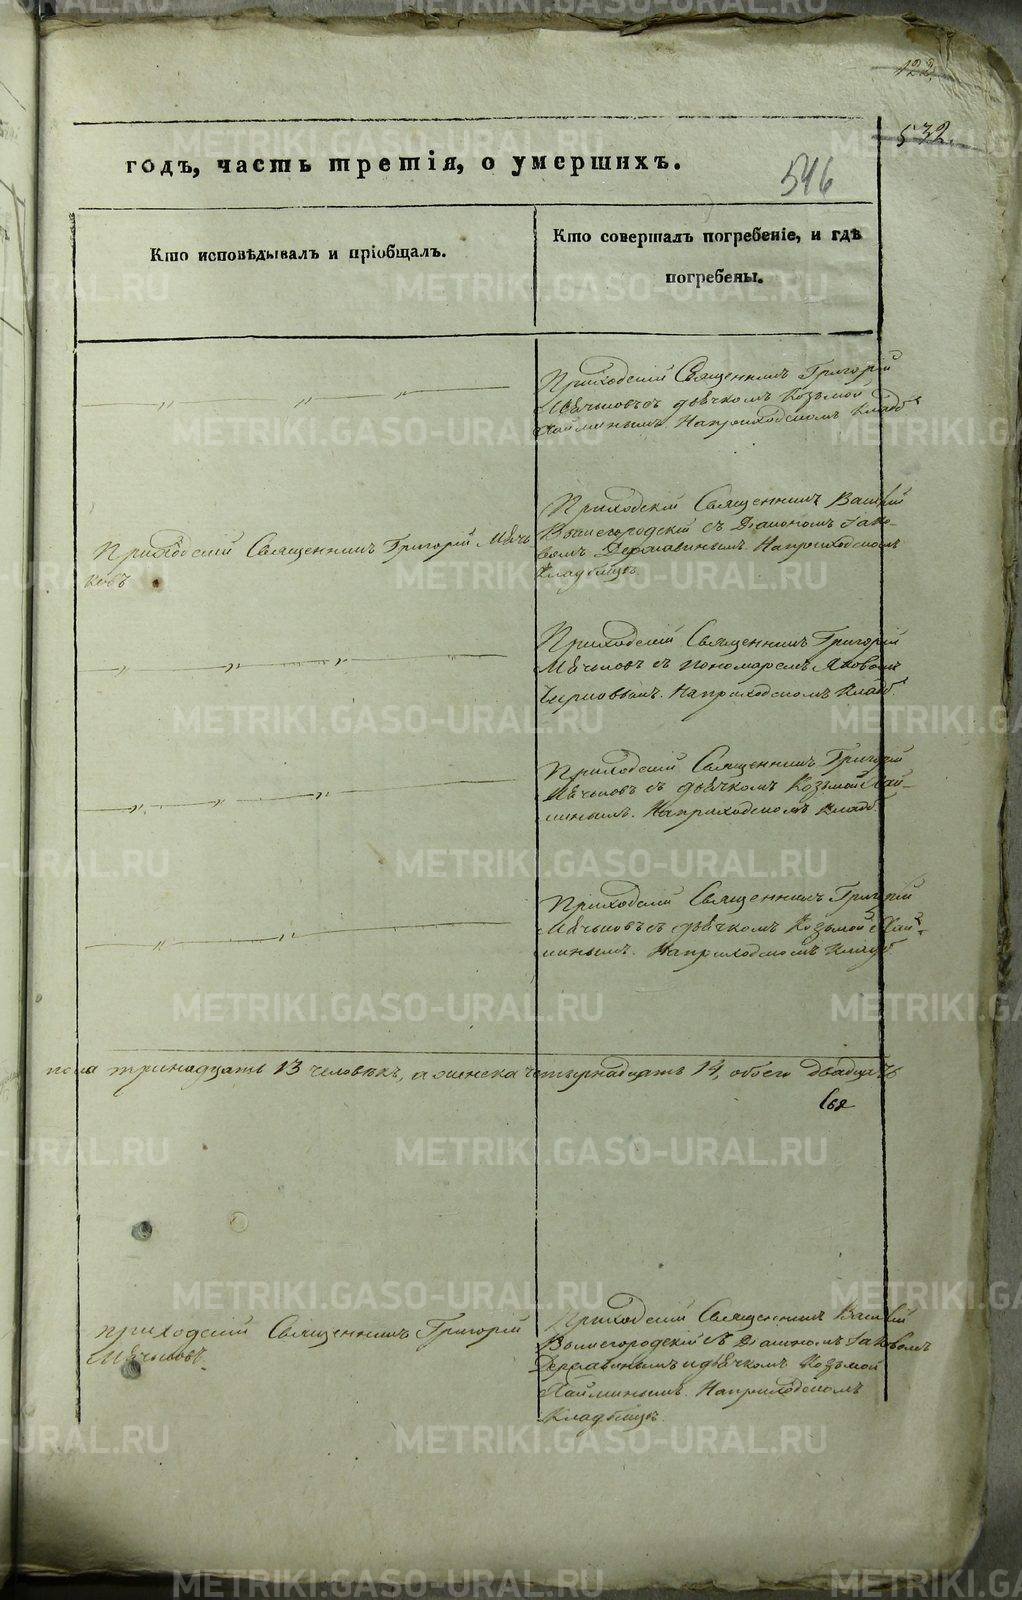 122.
532.
годъ, часть третія, о умершихъ.
516
Кто исповѣдывалъ и пріобщалъ.
Кто совершалъ погребеніе, и гдѣ
погребены.
Приходскій Священникъ Григорій
Мѣчьковъ съ дьячкомъ Козьмой
Хайминымъ. На приходскомъ кладб
Приходскій Священникъ Григорій Мѣчь
ковъ
Приходскій Священникъ Василій
Вышегородскій съ Діакономъ Іако-
вомъ Державинымъ. На приходскомъ
Кладбищѣ
Приходскій Священникъ Григорій
Мѣчьковъ съ пономаремъ Яковомъ
На приходскомъ кладб.
Приходскій Священникъ Григорій
Мѣчьковъ съ дьячкомъ Козьмой Хай-
минымъ. На приходскомъ кладб.
Приходскій Священникъ Григорій
Мѣчьковъ съ дьячкомъ Козьмой Хай-
минымъ. На приходскомъ кладб
пола тринадцать 13 человѣкъ, а женска четырнадцать 14, обоего двадцать
приходскій Священникъ Григорій
Мѣчьковъ.
Приходскій Священникъ Василій
Вышегородскій съ Діакономъ Іаковомъ
Державинымъ и дьячкомъ Козьмой
Хайминымъ. На приходскомъ
Кладбищѣ
METRIKI.GASO-URAL.RU